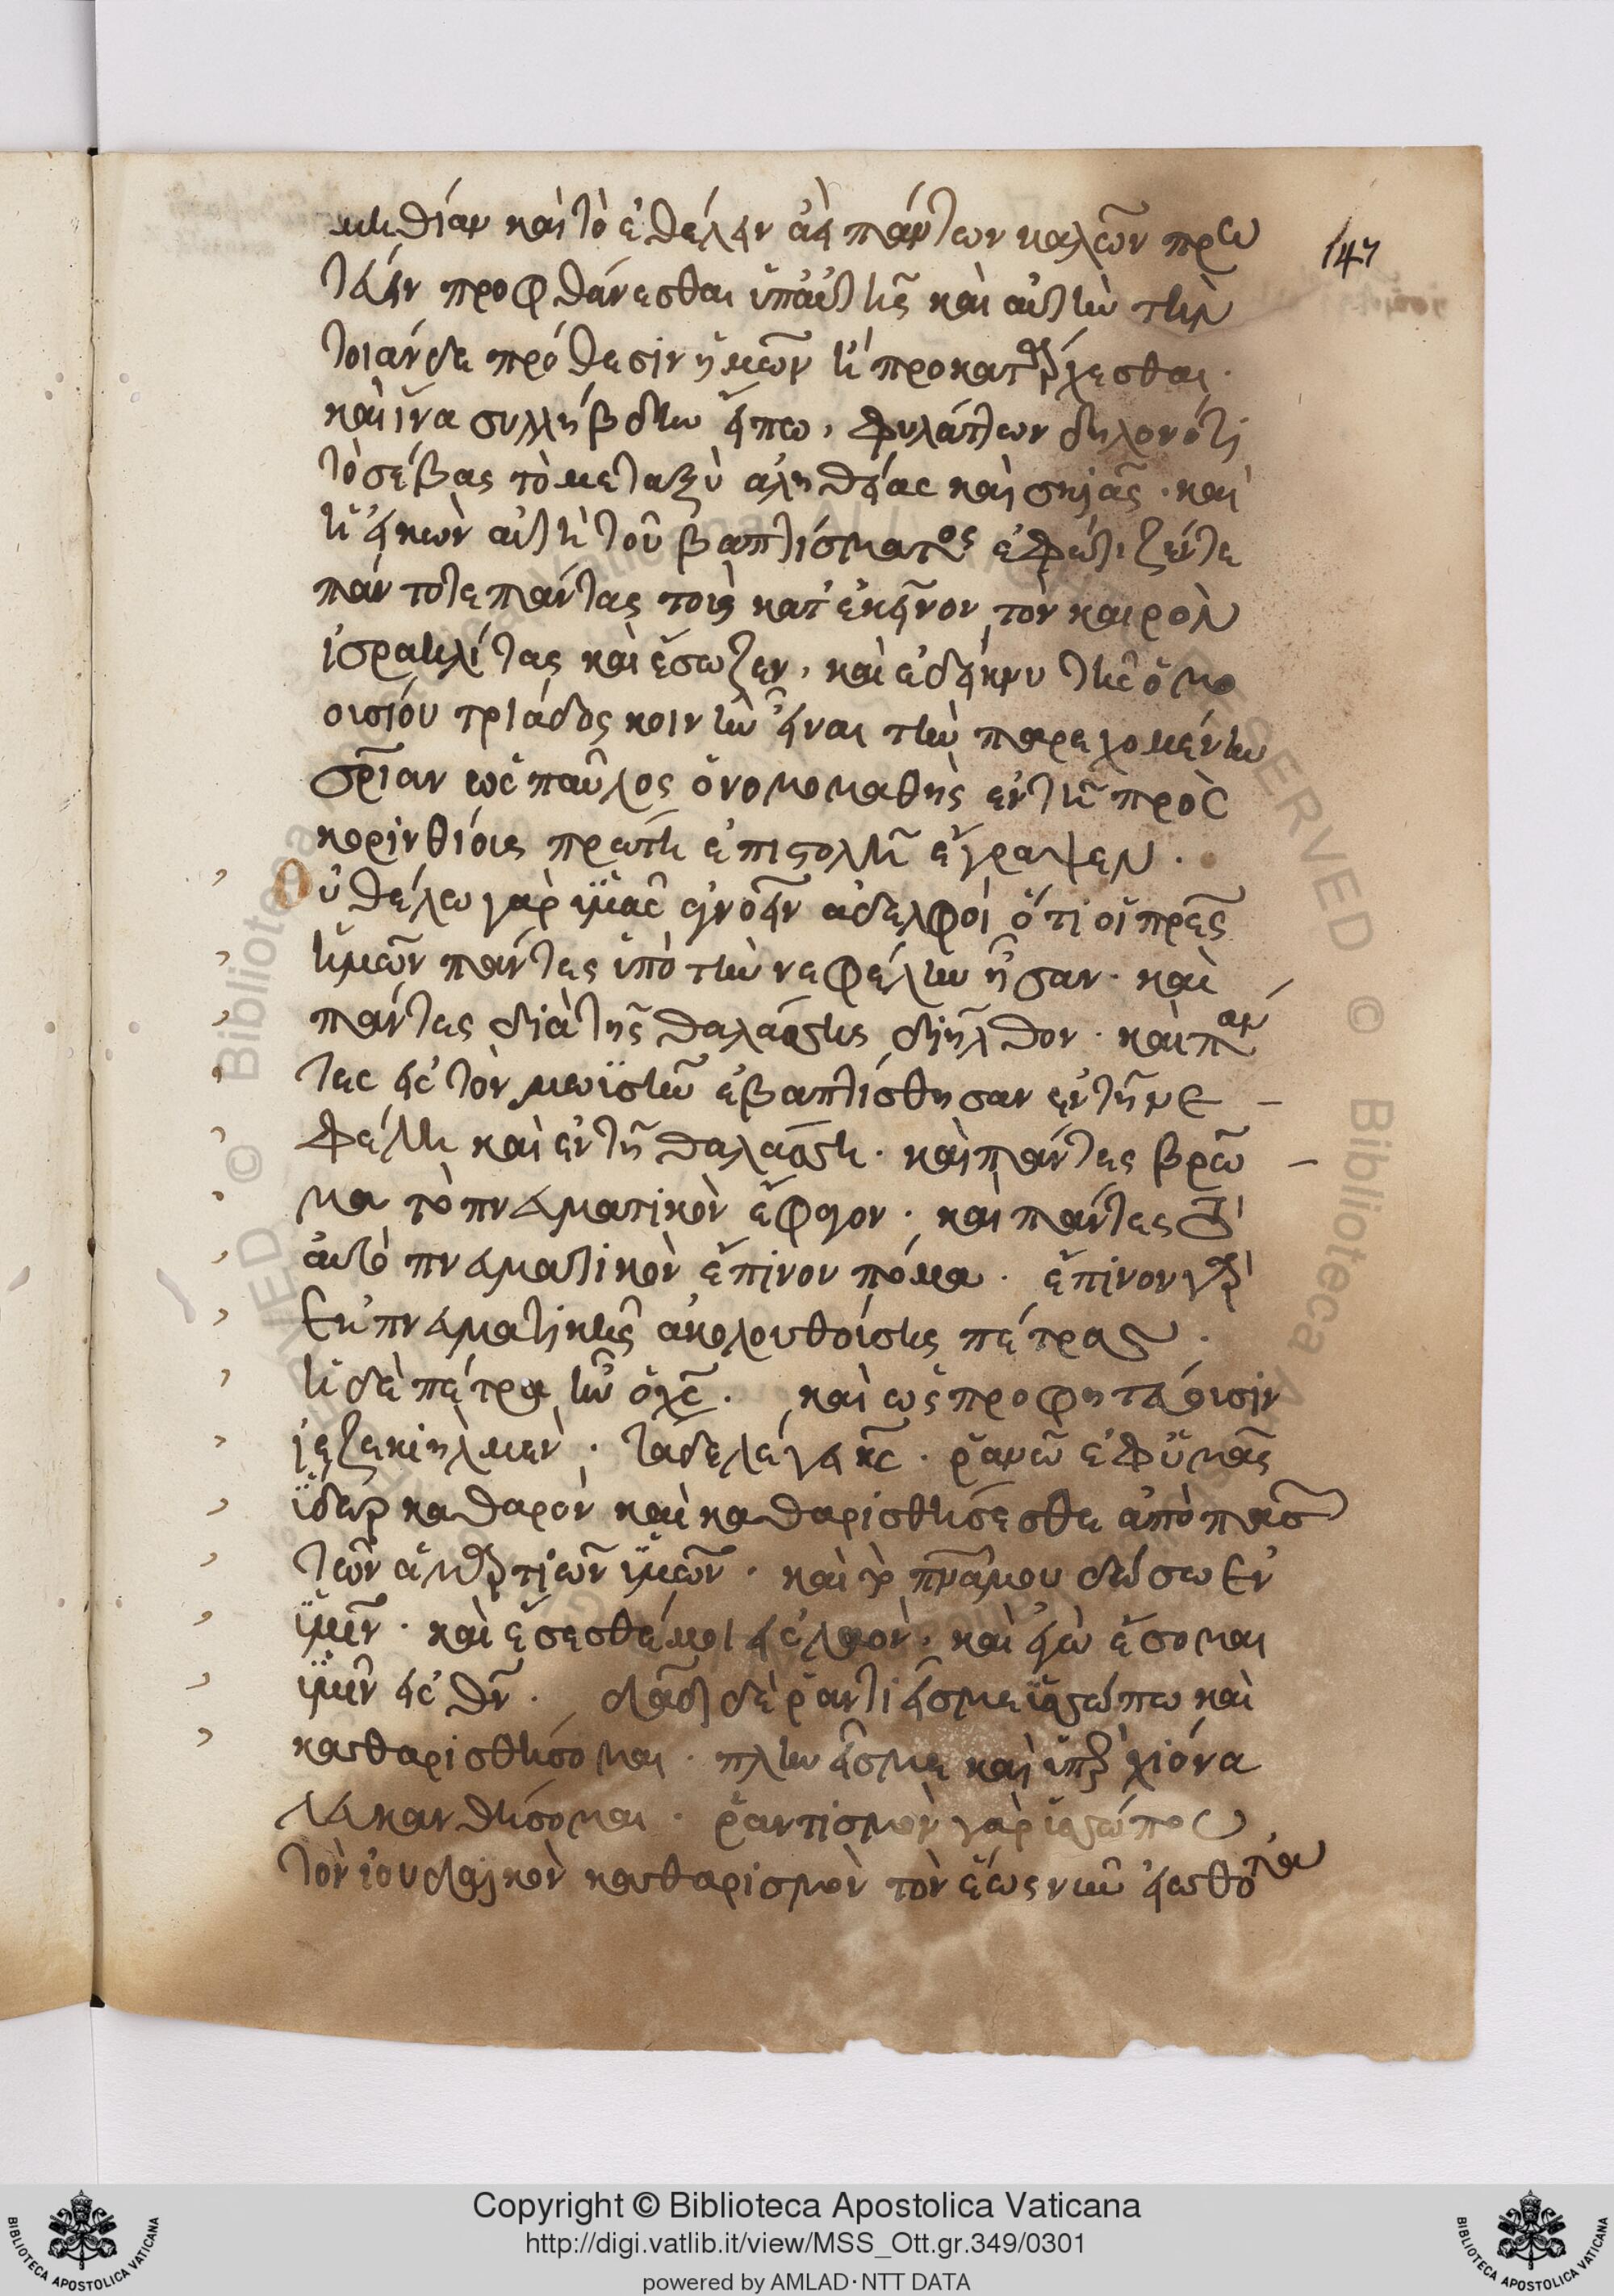 μηθίαν καὶ τὸ ἐθέλειν ἀεὶ πάντων καλῶν πρω
τεύειν προφθάνεσθαι ὑπ' αὐτῆς καὶ αὐτὴν τὴν
τοιάνδε πρόθεσιν ἡμῶν ἢ προκατάρχεσθαι.
καὶ ἵνα συλλήβδην εἴπω, φυλάττων δηλονότι
τὸ σέβας τὸ μεταξὺ ἀληθείας καὶ σκιᾶς. καὶ
ἡ εἰκὼν αὐτὴ τοῦ βαπτίσματος ἐφώτιζέν τε
πάντοτε πάντας τοὺς κατ' ἐκεῖνον τὸν καιρὸν
ἰσραηλίτας καὶ ἔσωζεν, καὶ ἐδείκνυ τῆς ὁμο
ουσίου τριάδος κοινὴν εἶναι τὴν παρεχομένην
σρίαν ὡς παῦλος ὁ νομομαθὴς ἐν τῇ πρὸς
κορινθίους πρώτη ἐπιστολῇ ἔγραψεν.
Οὐ θέλω γὰρ ὑμᾶς ἀγνοεῖν ἀδελφοί ὅτι οἱ πρες
ἡμῶν πάντες ὑπὸ τὴν νεφέλην ἦσαν. καὶ
πάντες διὰ τῆς θαλάσσης διῆλθον. καὶ πάν
τες εἰς τὸν μωϋσῆν ἐβαπτίσθησαν ἐν τῇ νε
φέλῃ καὶ ἐν τῇ θαλάσσῃ. καὶ πάντες βρῶ
μα τὸ πνευματικὸν ἔφαγον. καὶ πάντες τὸ
αὐτὸ πνευματικὸν ἔπινον πόμα. ἔπινον γὰρ
ἐκ πνευματικῆς ἀκολουθούσης πέτρας.
ἡ δὲ πέτρα ἦν ὁ χς. καὶ ὡς προφητεύουσιν
ἰεζεκιὴλ μὲν. τάδε λέγει κς. ῥανῶ ἐφ' ὑμᾶς
ὕδωρ καθαρὸν καὶ καθαρισθήσεσθε ἀπὸ πασ
τῶν ἁμαρτιῶν ὑμῶν. καὶ τὸ πνα μου δώσω ἐν
ὑμῖν. καὶ ἔσεσθέ μοι εἰς λαόν. καὶ ἐγὼ ἔσομαι
ὑμῖν εἰς θν. δαδ δὲ ῥαντιεῖς με ὑσσώπω καὶ
καθαρισθήσομαι. πλυνεῖς με καὶ ὑπὲρ χιόνα
λευκανθήσομαι. ῥαντισμὸν γὰρ ὑσσώπου
τὸν ἰουδαϊκὸν καθαρισμὸν τὸν ἕως νῦν
147
Copyright © Biblioteca Apostolica Vaticana
http://digi.vatlib.it/view/MSS_Ott.gr.349/0301
powered by AMLAD·NTT DATA